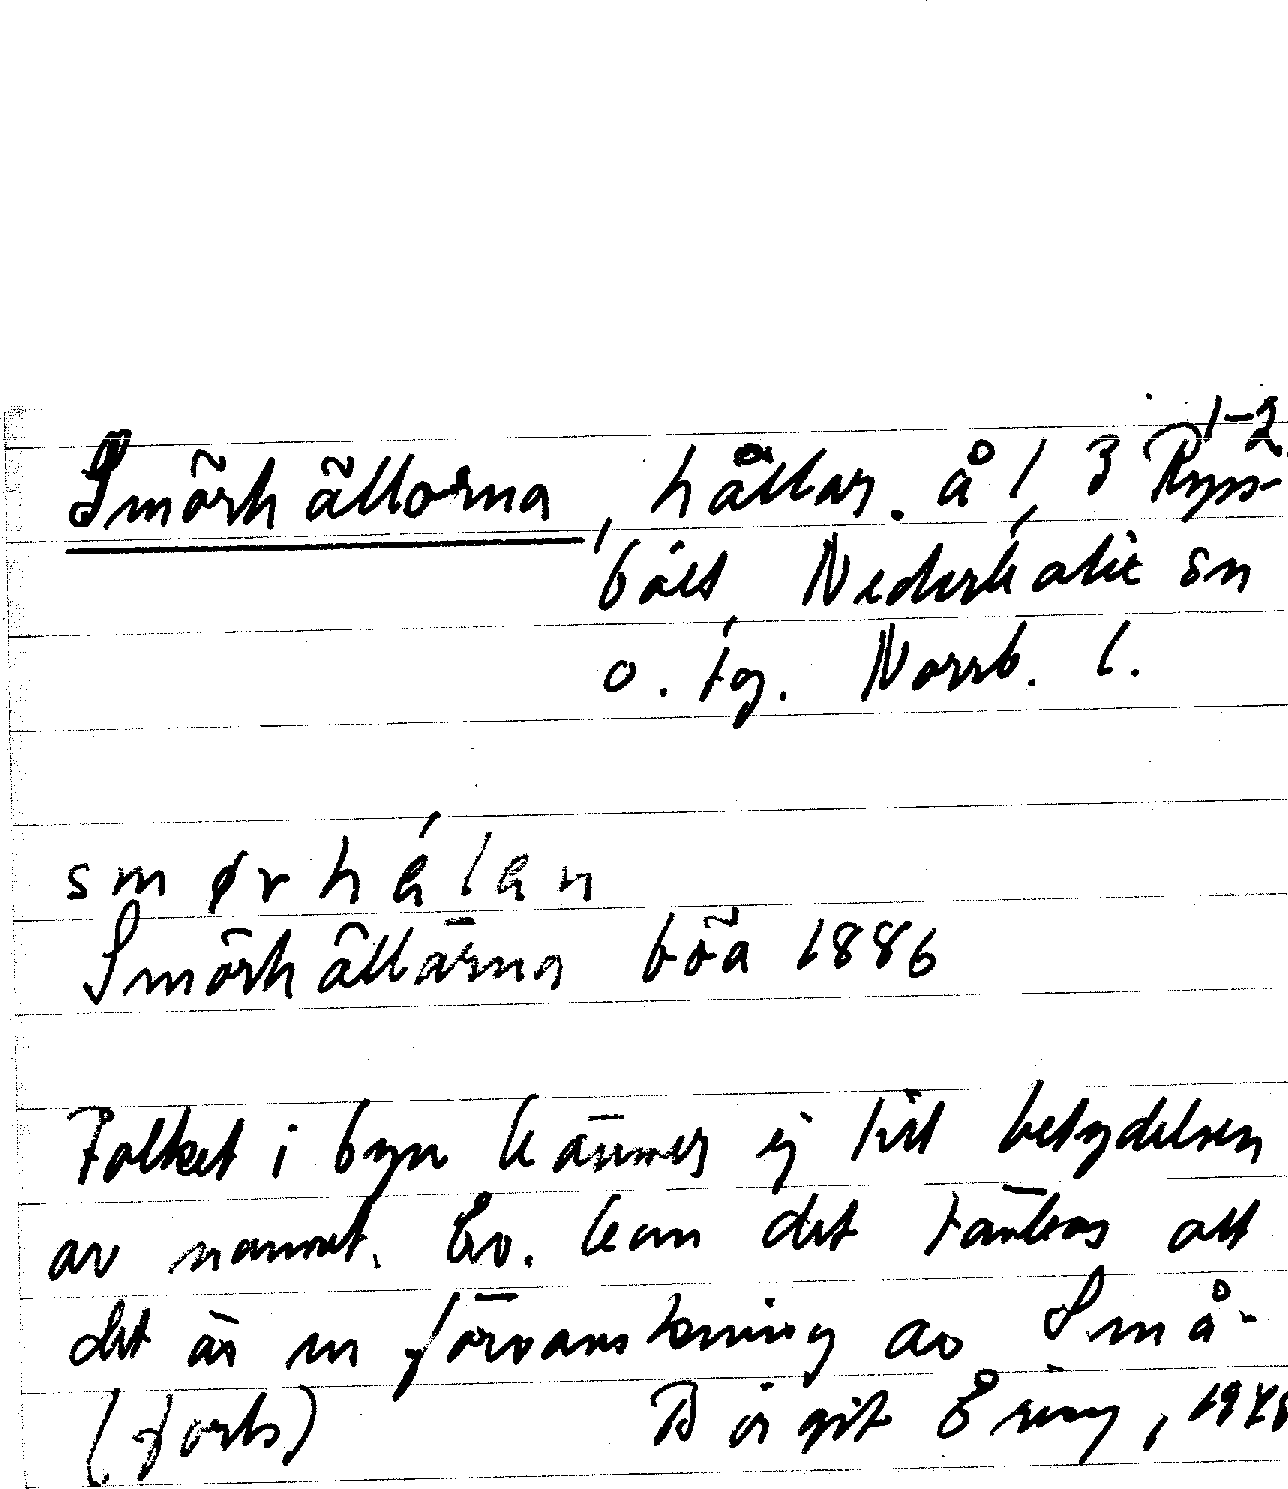 1-2
Smörhällorna, hällar. å 1, 3 Ryss-
bält, Nederkalix sn
o. tg. Norrb. l.
smørhálan
Smörhällärna böa 1886
Folket i byn känner ej till betydelsen
av namnet. Ev. kan det tänkas att
det är en förvanskning av Små-
(forts) Birgit Ering, 1948